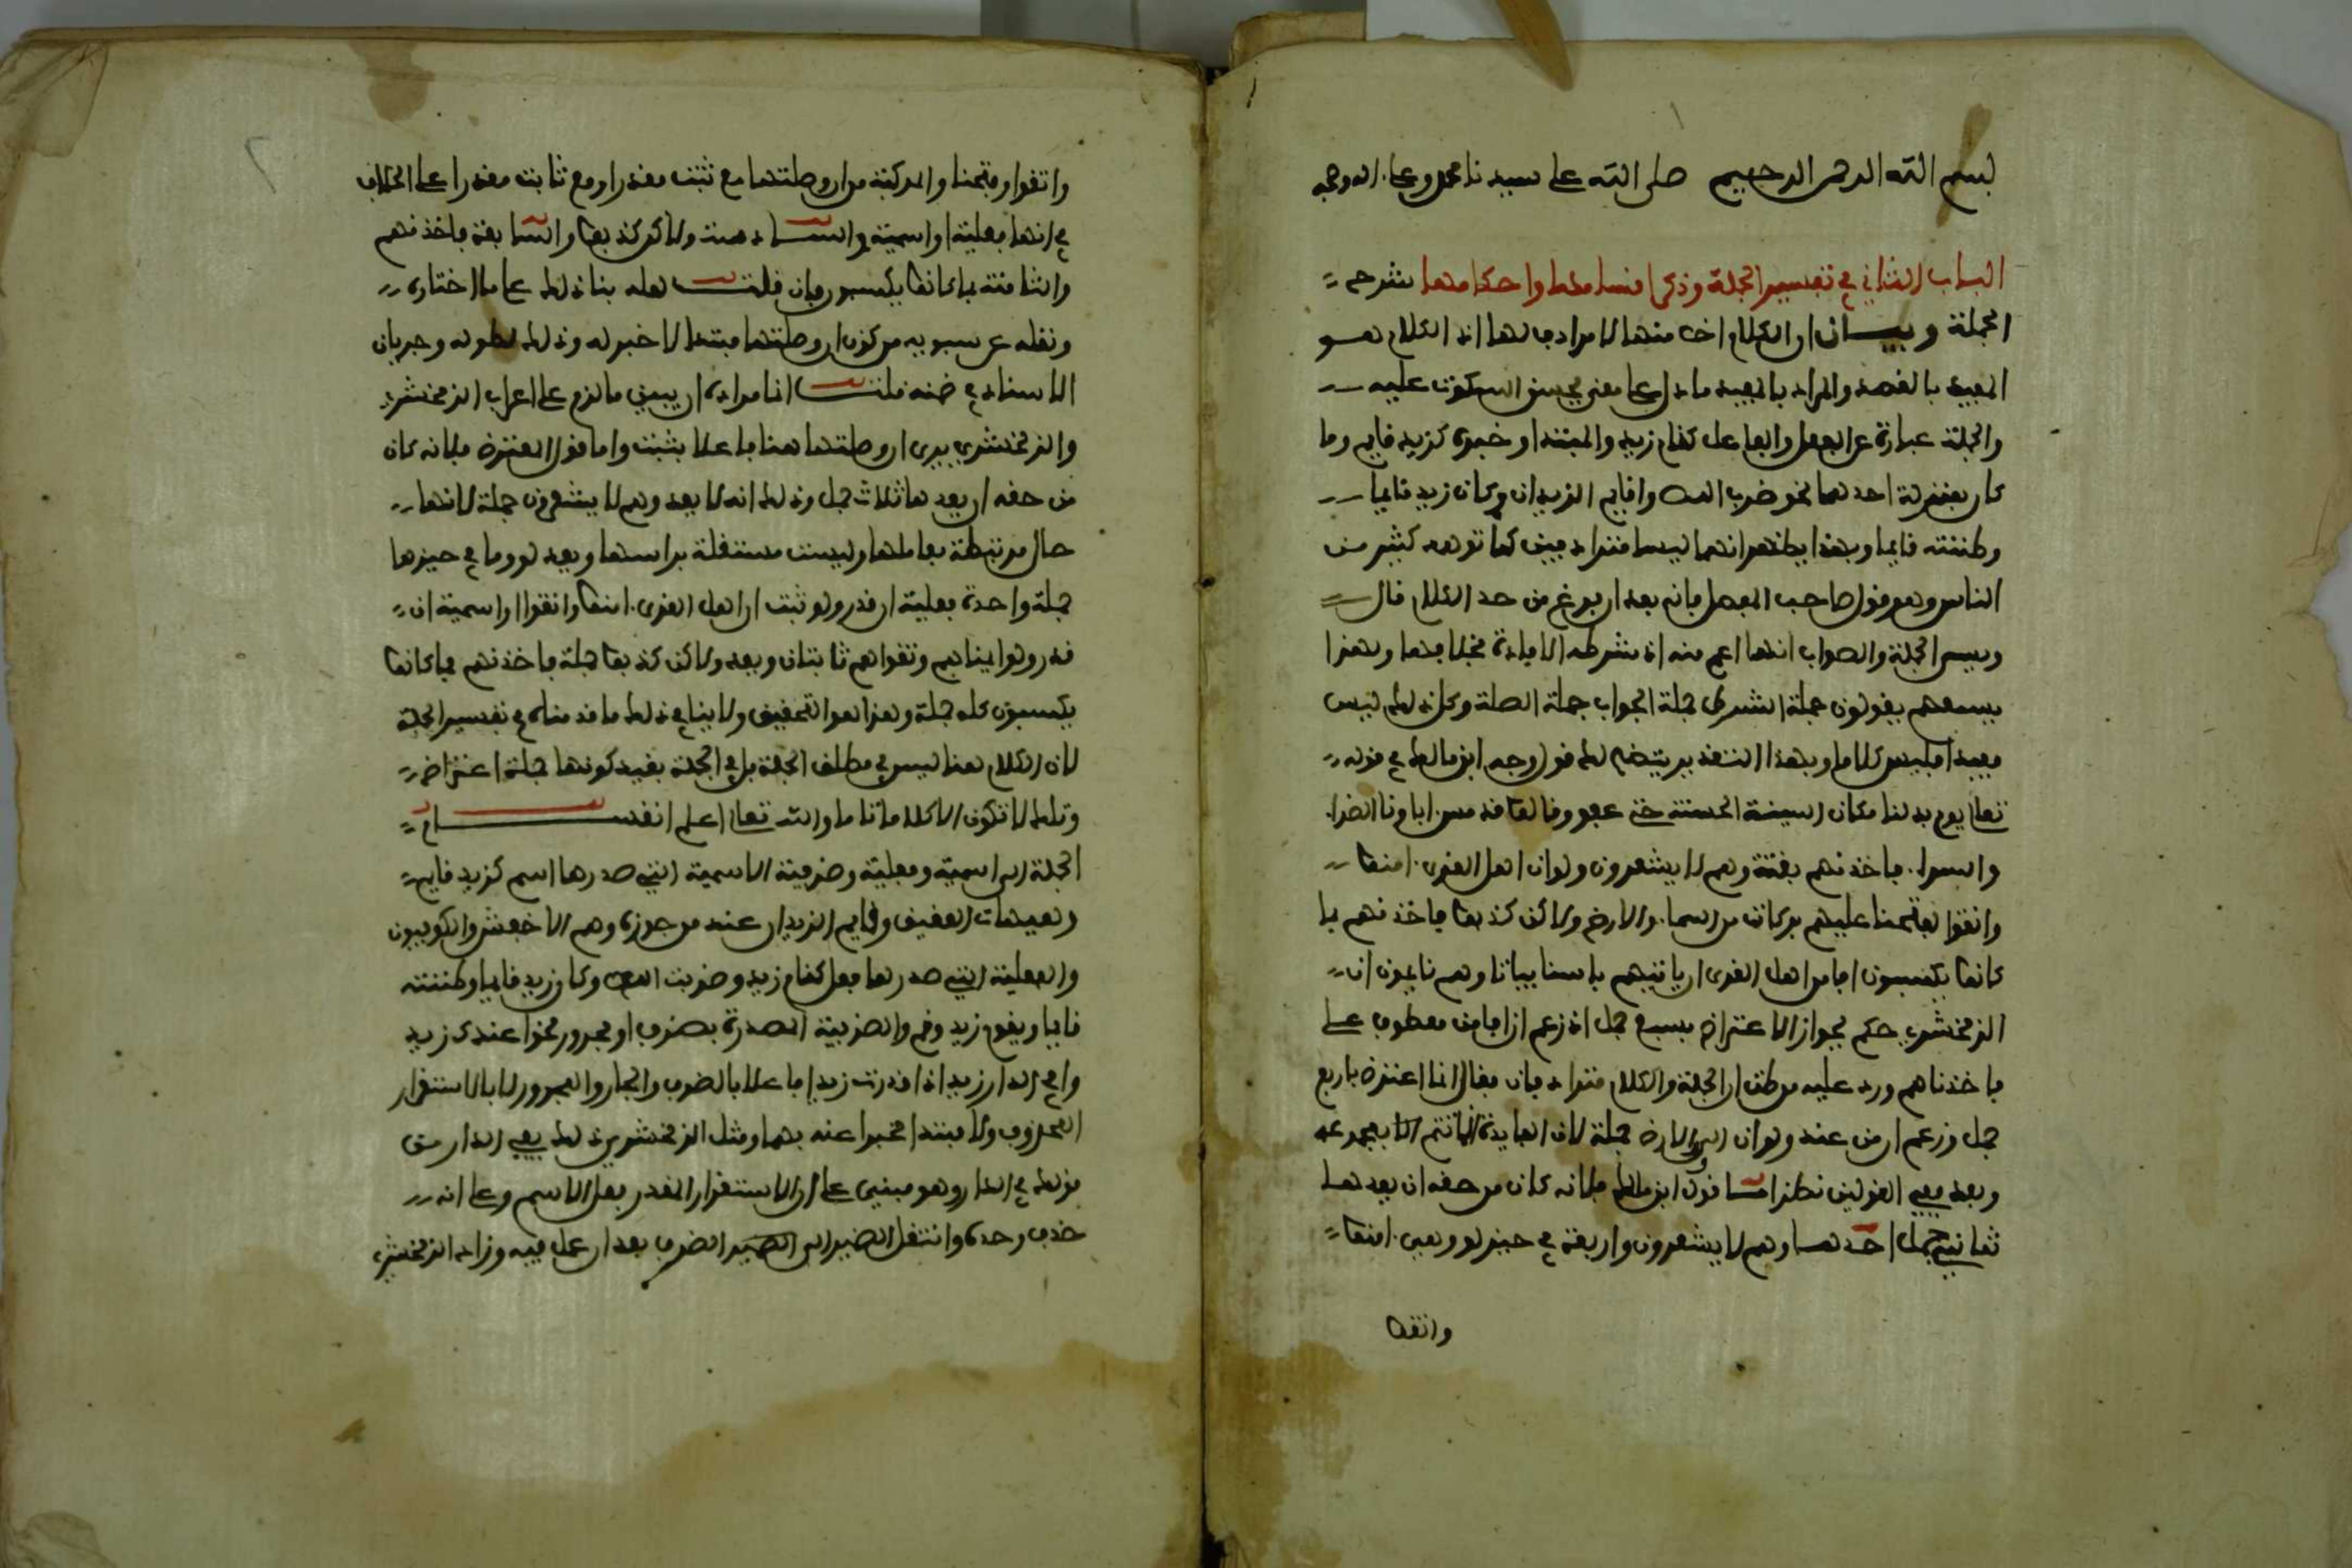 بسم الله الرحمن الرحيم صلى الله على سيدنا محمد وعلى ءاله وصحبه
الباب الثاني في تفسير الجملة وذكر اقسامها واحكامها شرح
الجملة وبيان ان الكلام اخص منها لا مرادف لها ان الكلام هو
المفيد بالقصد والمراد بالمفيد ما دل على معنى يحسن السكوت عليه
والجملة عبارة عن الفعل والفاعل كقام زيد والمبتدا وخبره كزيد قايم وما
كان بمنزلة احدهما نحو ضرب اللص واقايم الزيدان وكان زيد قايما
وظننته قايما وبهذا يظهر انهما ليسا مترادفين كما توهمه كثير من
الناس وهو قول صاحب المفصل فانه بعد ان فرغ من حد الكلام قال
ويسمى الجملة والصواب انها اعم منه اذ شرطه الافادة بخلافها ولهذا
تسمعهم يقولون جملة الشرط جملة الجواب جملة الصلة وكل ذلك ليس
مفيدا فليس كلاما وبهذا التقدير يتضح لك قول وجه ابن مالك في قوله
تعالى ثم بدلنا مكان السيئة الحسنة حتى عفوا وقالوا قد مس ءاباءنا الضراء
والسراء فاخذنهم بغتة وهم لا يشعرون ولو ان اهل القرى ءامنوا
واتقوا لفتحنا عليهم بركات من السماء والارض ولاكن كذبوا فاخذنهم بما
كانوا يكسبون افامن اهل القرى ان ياتيهم باسنا بياتا وهم نايمون ان
الزمخشري حكم بجواز الاعتراض بسبع جمل اذ زعم ان افامن معطوف على
فاخذناهم ورد عليه من ظن ان الجملة والكلام مترادفان فقال انما اعترض باربع
جمل وزعم ان من عند ولو ان الى والارض جملة لان الفايدة انما تتم الا بمجموعه
وبعد ففي القولين نظر اما قول ابن مالك فلانه كان من حقه ان يعدها
ثماني جمل احدها وهم لا يشعرون واربعة في حيز لو وهي ءامنوا
واتقوا
واتقوا وفتحنا والمركبة من ان وصلتها مع ثبت مقدرا ومع ثابت مقدرا على الخلاف
في انها فعلية او اسمية والسادسة ولاكن كذبوا والسابعة فاخذنهم
والثامنة بما كانوا يكسبون فان قلت لعله بنا ذلك على ما اختاره
ونقله عن سيبويه من كون ان وصلتها مبتدا لا خبر له وذلك لطوله وجريان
الاسناد في ضمنه قلت انما مراده ان يبين ما لزم على اعراب الزمخشري
والزمخشري يرى ان وصلتها هنا فاعلا بثبت واما قول المعترض فلانه كان
من حقه ان يعدها ثلاث جمل وذلك انه لا يعد وهم لا يشعرون جملة لانها
حال مرتبطة بعاملها وليست مستقلة براسها ويعد لو وما في حيزها
جملة واحدة فعلية ان قدر ولو ثبت ان اهل القرى ءامنوا واتقوا او اسمية ان
قدر ولو ايمانهم وتقواهم ثابتان ويعد ولاكن كذبوا جملة فاخذنهم بما كانوا
يكسبون كله جملة وهذا هو التحقيق ولا ينافي ذلك ما قدمناه في تفسير الجملة
لان الكلام هنا ليس في مطلق الجملة بل في الجملة بقيد كونها جملة اعتراض
وتلك لا تكون الا كلاما تاما والله تعالى اعلم انقسام
الجملة الى اسمية وفعلية وظرفية الاسمية التي صدرها اسم كزيد قايم
وهيهات العقيق وقايم الزيدان عند من جوزه وهم الاخفش والكوفيون
والفعلية التي صدرها فعل كقام زيد وضرب اللص وكان زيد قايما وظننته
قايما ويقوم زيد وقم والظرفية المصدرة بظرف او مجرور نحو اعندك زيد
وافي الدار زيد اذا قدرت زيدا فاعلا بالظرف والجار والمجرور لا بالاستقرار
المحذوف ولا مبتدا مخبرا عنه بهما ومثل الزمخشري لذلك بفي الدار من
قولك في الدار وهو مبني على ان الاستقرار المقدر فعل لا اسم وعلى انه
حذف وحده وانتقل الضمير الى الظرف بعد ان عمل فيه وزاد الزمخشري